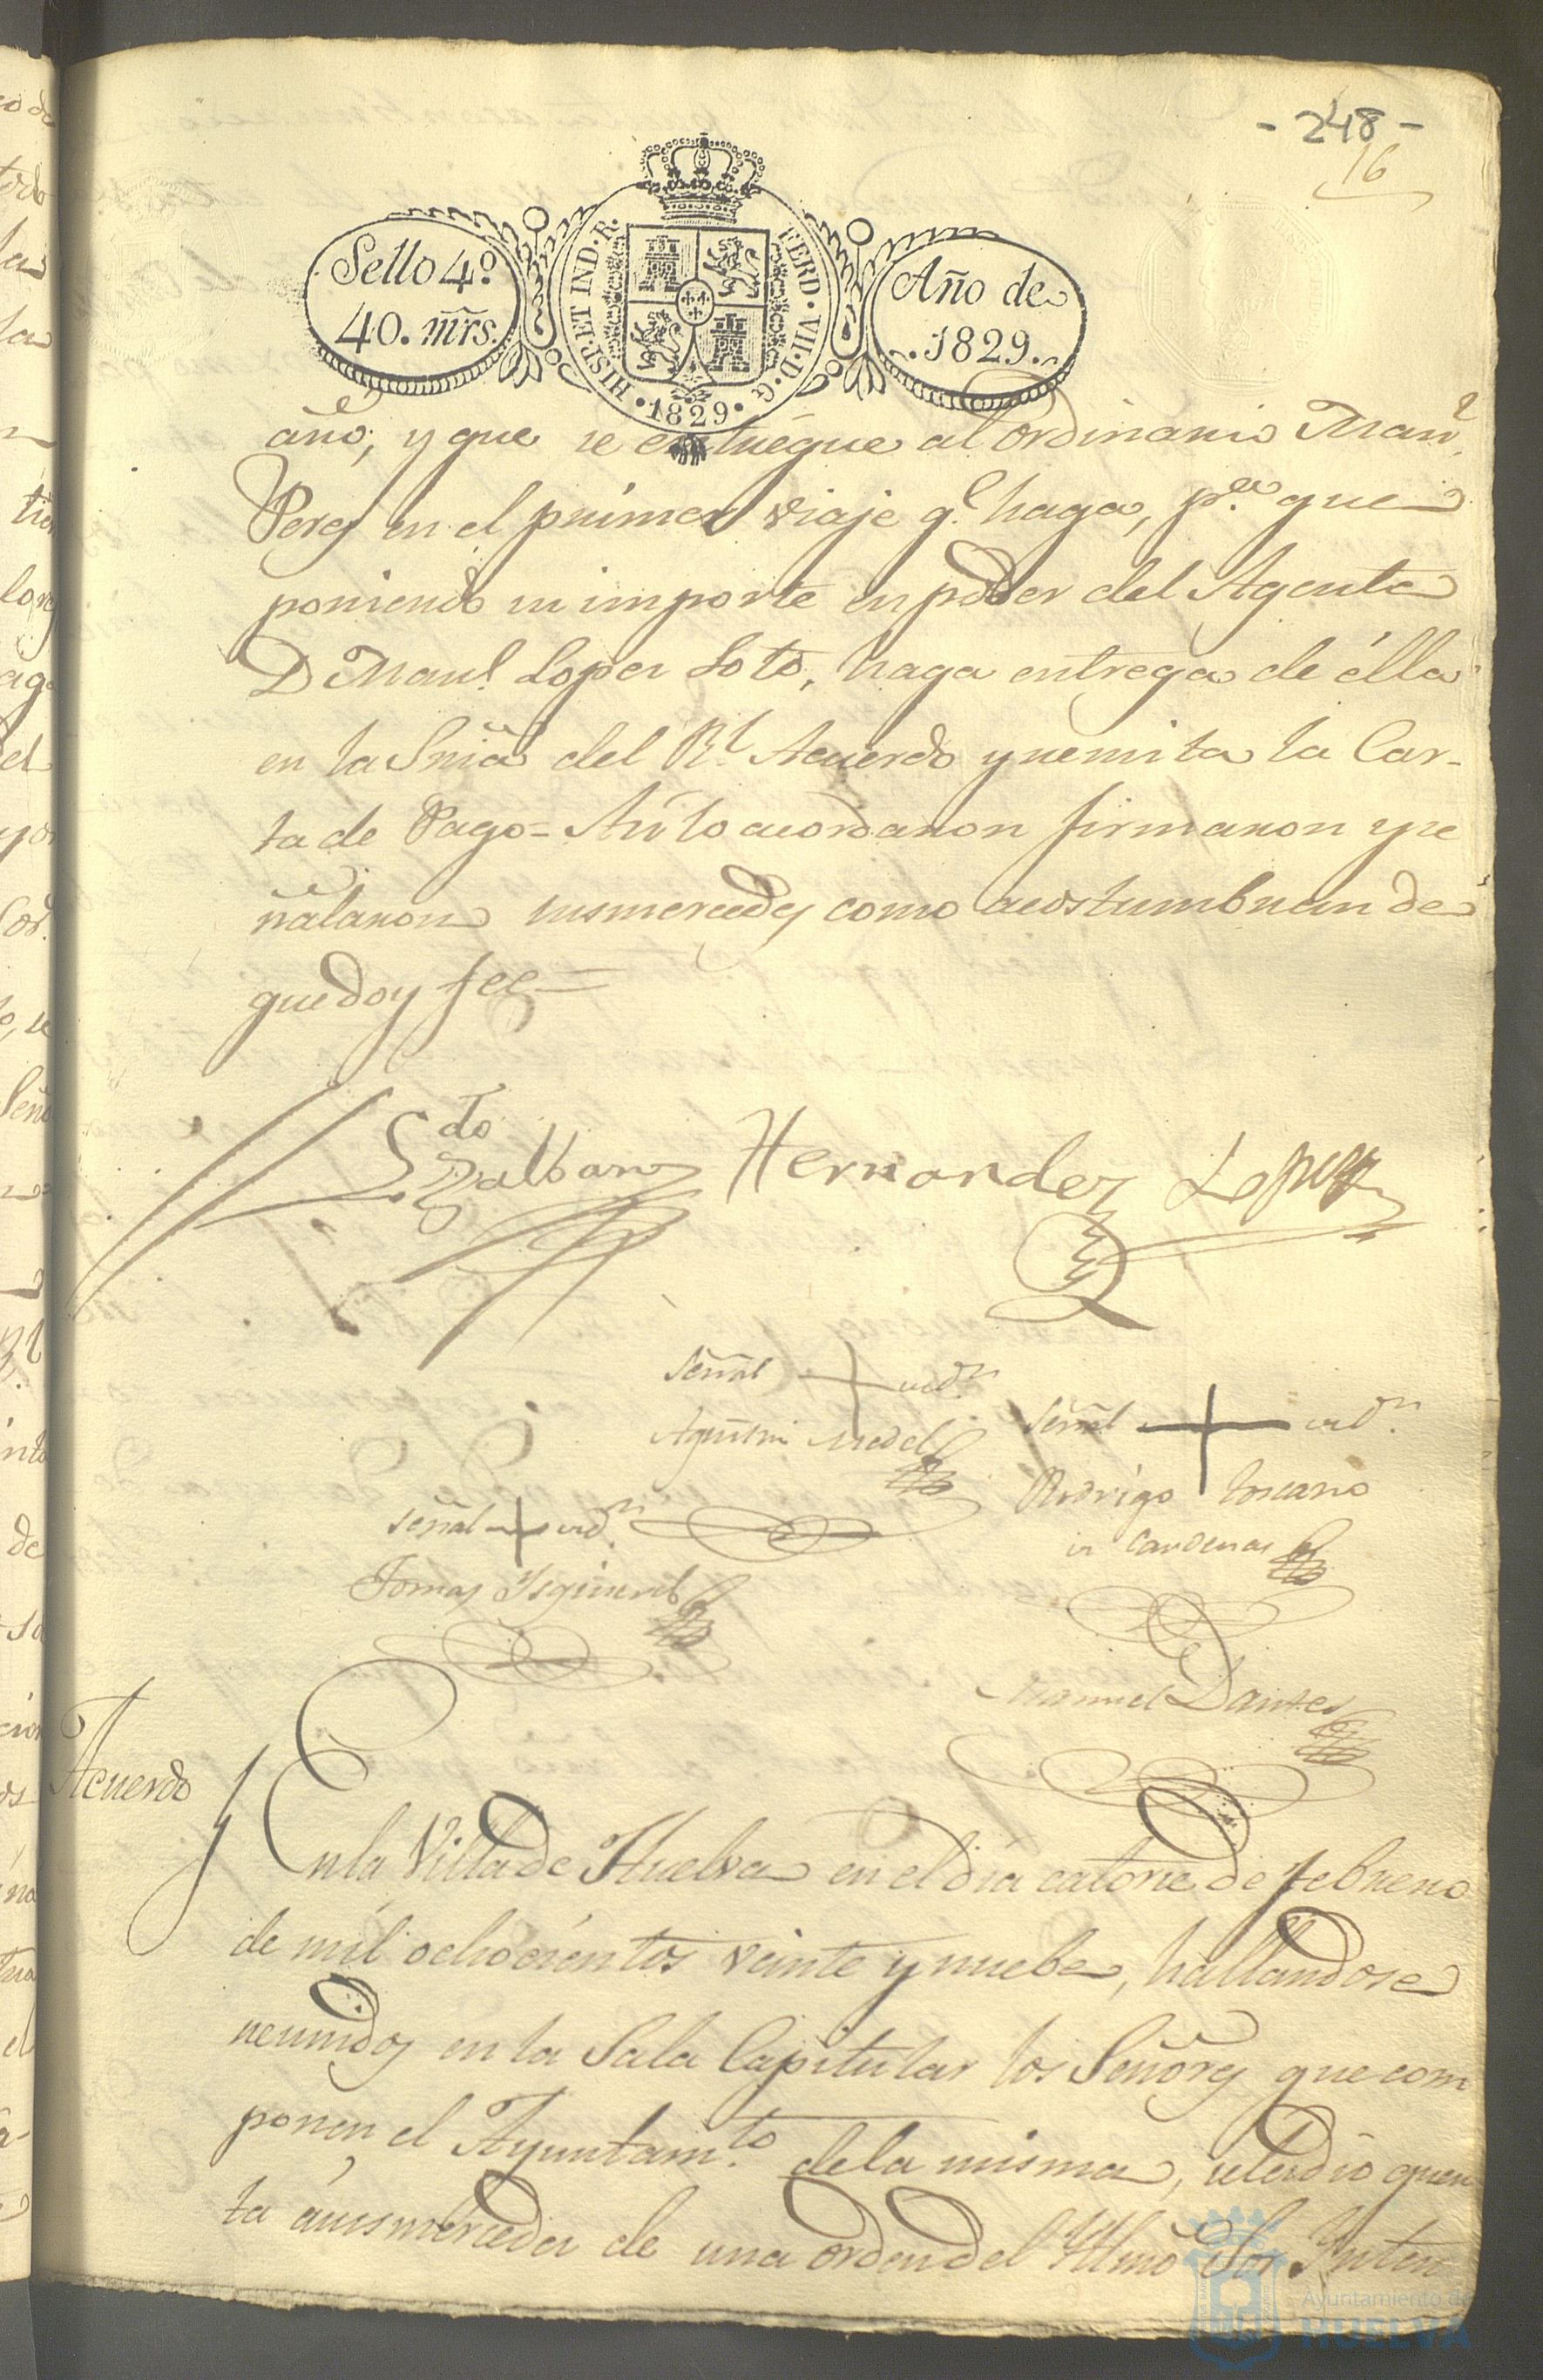 - 248 -
16
Sello 4º
40. mrs.
HISP. ET IND. R.
FERD. VII. D. G.
1829
Año de
1829.
año, y que se entregue al Ordinario Manl.
Perez en el primer viaje q.e haga, p.a que
poniendo su importe en poder del Agente
D Manl. Lopez Soto, haga entrega de élla
en la Sria del Rl. Acuerdo y remita la Car-
ta de Pago = Asi lo acordaron firmaron y se
ñalaron sus mercedes como acostumbran de
que doy fee =
Hernandez Lopez
Señal + del Sr.
Agustin Medel
Señal + del Sr.
Rodrigo Toscano
de Cardenas
Señal + del Sr.
Tomas Ysquierdo
Manuel Dantes
Acuerdo
En la Villa de Huelva en el dia catorce de febrero
de mil ochocientos veinte y nuebe, hallandose
reunidos en la Sala Capitular los Señores que com
ponen el Ayuntam.to de la misma, se les dio quen
ta á sus mercedes de una orden del Yllmo Sor. Ynten
Ayuntamiento de
HUELVA